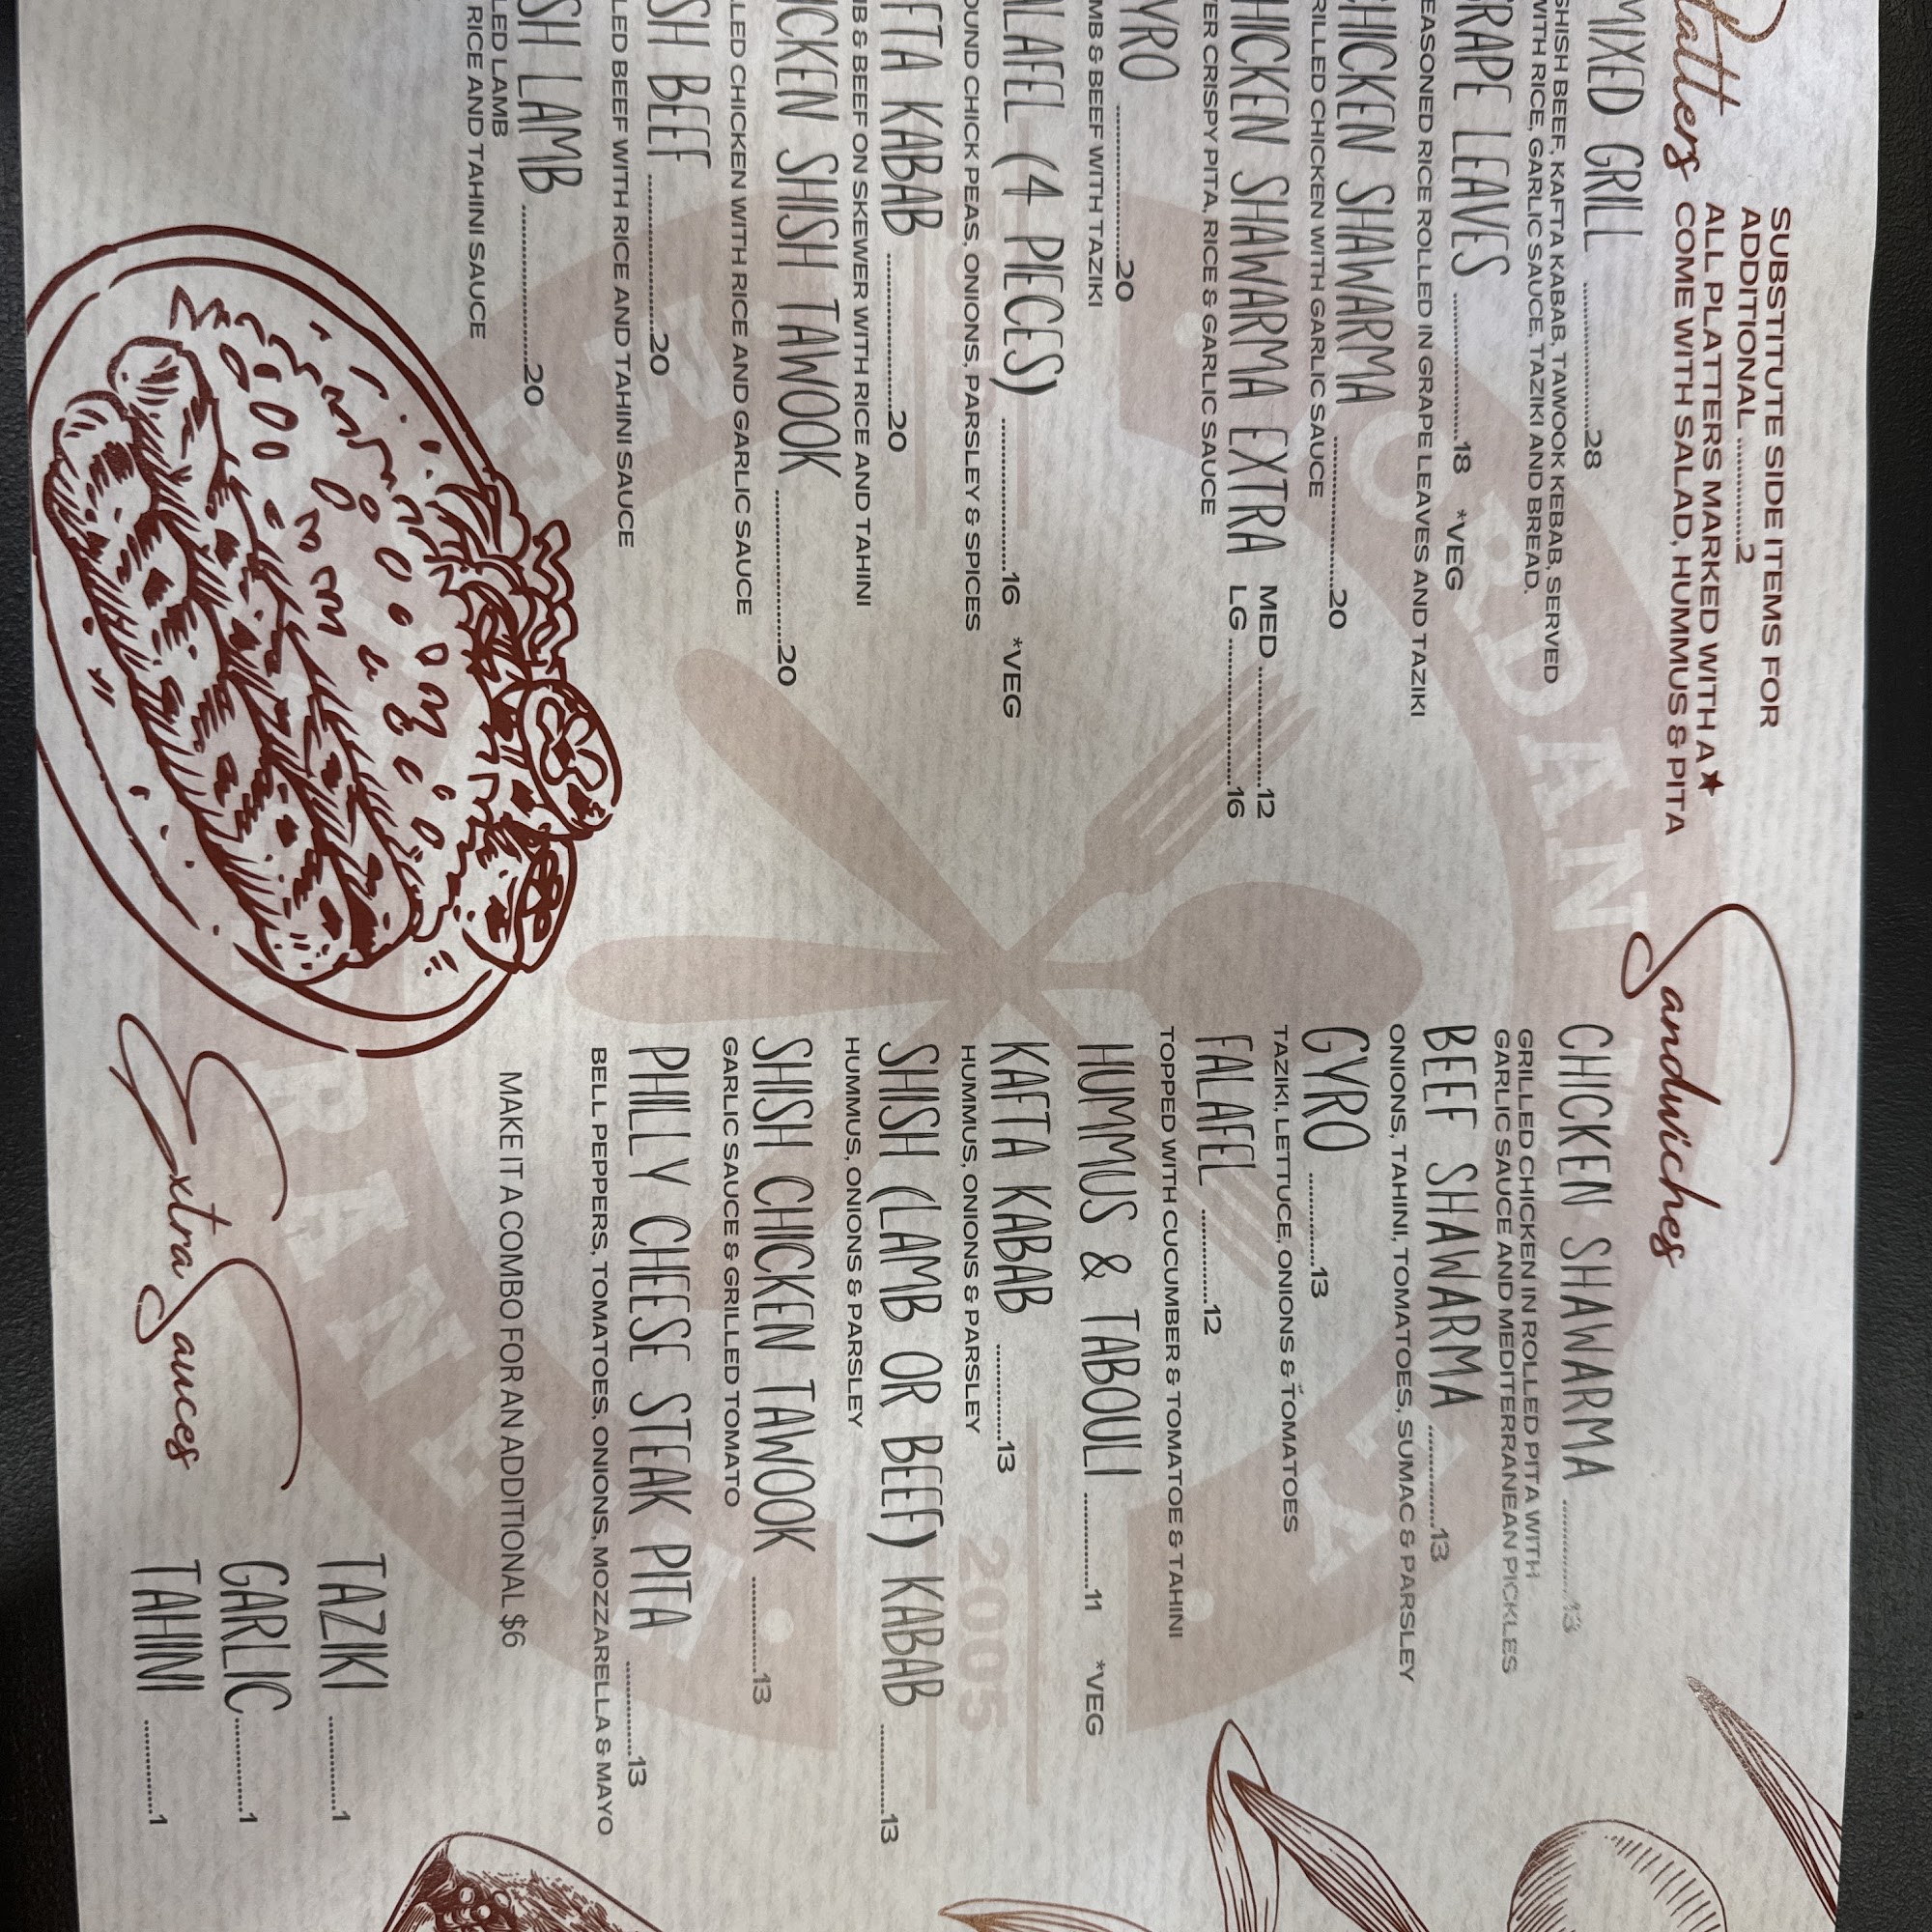 Platters
SUBSTITUTE SIDE ITEMS FOR
ADDITIONAL ............2
ALL PLATTERS MARKED WITH A ★
COME WITH SALAD, HUMMUS & PITA
MIXED GRILL ....................28
SHISH BEEF, KAFTA KABAB, TAWOOK KEBAB, SERVED
WITH RICE, GARLIC SAUCE, TAZIKI AND BREAD.
RAPE LEAVES ....................18 *VEG
EASONED RICE ROLLED IN GRAPE LEAVES AND TAZIKI
CHICKEN SHAWARMA ....................20
RILLED CHICKEN WITH GARLIC SAUCE
HICKEN SHAWARMA EXTRA MED ...............12
LG ....................16
ER CRISPY PITA, RICE & GARLIC SAUCE
YRO ....................20
MB & BEEF WITH TAZIKI
ALAFEL (4 PIECES) ....................16 *VEG
OUND CHICK PEAS, ONIONS, PARSLEY & SPICES
FTA KABAB ....................20
B & BEEF ON SKEWER WITH RICE AND TAHINI
ICKEN SHISH TAWOOK ....................20
LED CHICKEN WITH RICE AND GARLIC SAUCE
SH BEEF ....................20
LED BEEF WITH RICE AND TAHINI SAUCE
SH LAMB ....................20
LED LAMB
RICE AND TAHINI SAUCE
Sandwiches
CHICKEN SHAWARMA ............13
GRILLED CHICKEN IN ROLLED PITA WITH
GARLIC SAUCE AND MEDITERRANEAN PICKLES
BEEF SHAWARMA ............13
ONIONS, TAHINI, TOMATOES, SUMAC & PARSLEY
GYRO ............13
TAZIKI, LETTUCE, ONIONS & TOMATOES
FALAFEL ............12
TOPPED WITH CUCUMBER & TOMATOE & TAHINI
HUMMUS & TABOULI ............11 *VEG
KAFTA KABAB ............13
HUMMUS, ONIONS & PARSLEY
SHISH (LAMB OR BEEF) KABAB ............13
HUMMUS, ONIONS & PARSLEY
SHISH CHICKEN TAWOOK ............13
GARLIC SAUCE & GRILLED TOMATO
PHILLY CHEESE STEAK PITA ............13
BELL PEPPERS, TOMATOES, ONIONS, MOZZARELLA & MAYO
MAKE IT A COMBO FOR AN ADDITIONAL $6
Extra Sauces
TAZIKI ............1
GARLIC ............1
TAHINI ............1
2005